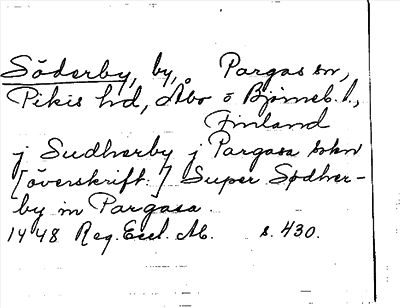 Söderby, by, Pargas sn,
Pikis hd, Åbo o Björneb. l.,
Finland
j Sudherby j Pargasa sokn
[överskrift:] Super Sødher-
by in Pargasa.
1448 Reg. Eccl. Ab. s. 430.